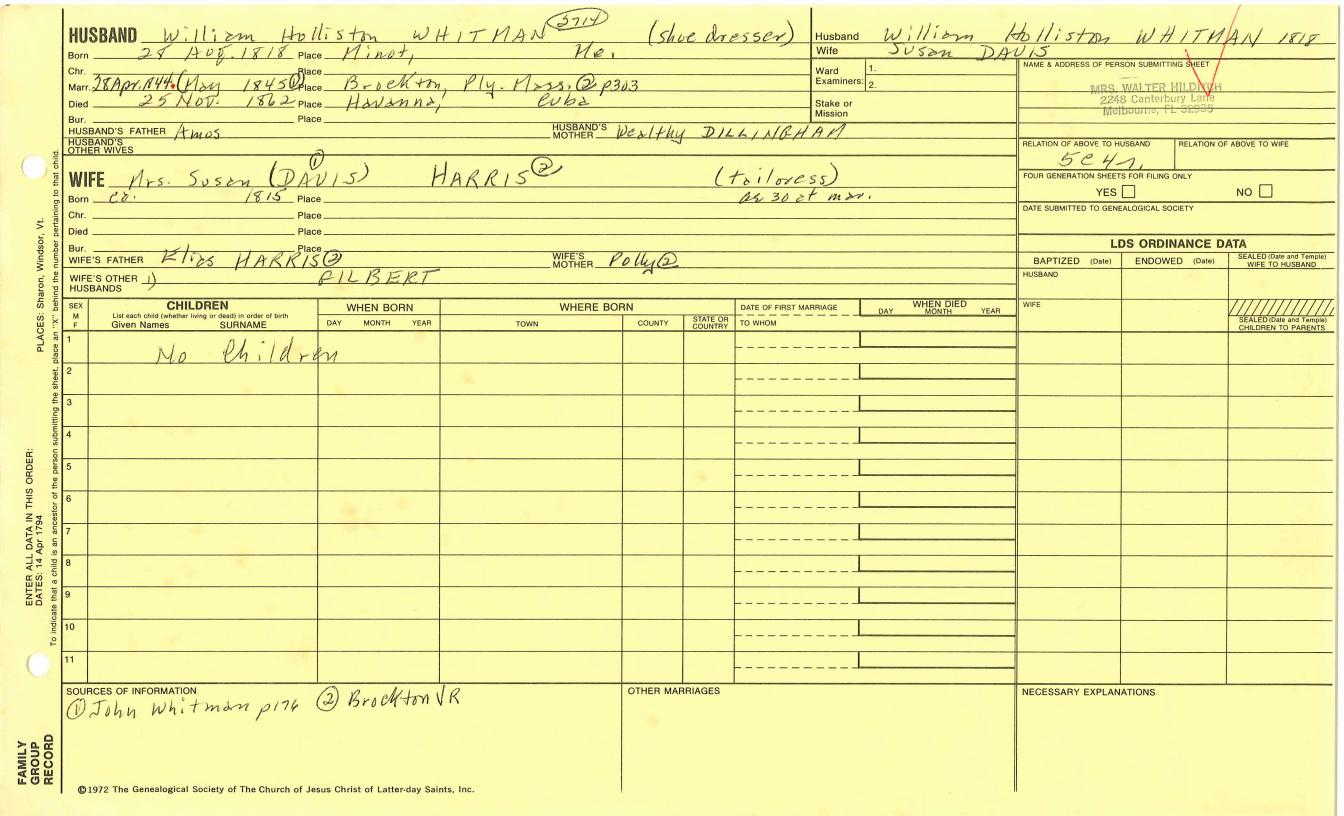 HUSBAND William Holliston WHITMAN 3714 (shoe dresser)
Born 28 Aug. 1818 Place Minot, Me.
Chr. Place
Marr. 28 Apr. 1844. (May 1845 ① Place Brockton, Ply. Mass. ② p303
Died 25 Nov. 1862 Place Havanna, Cuba
Bur. Place
HUSBAND'S FATHER Amos HUSBAND'S MOTHER Wealthy DILLINGHAM
HUSBAND'S OTHER WIVES
WIFE Mrs. Susan (DAVIS) ① HARRIS ② (tailoress)
Born ca. 1815 Place ae 30 at mar.
Chr. Place
Died Place
Bur. Place
WIFE'S FATHER Elias HARRIS ② WIFE'S MOTHER Polly ②
WIFE'S OTHER HUSBANDS 1) GILBERT
Husband William Holliston WHITMAN 1818
Wife Susan DAVIS
Ward Examiners: 1.
2.
Stake or Mission
NAME & ADDRESS OF PERSON SUBMITTING SHEET
MRS. WALTER HILDRETH
2248 Canterbury Lane
Melbourne, FL 32935
RELATION OF ABOVE TO HUSBAND RELATION OF ABOVE TO WIFE
5c4r.
FOUR GENERATION SHEETS FOR FILING ONLY
YES NO
DATE SUBMITTED TO GENEALOGICAL SOCIETY
LDS ORDINANCE DATA
BAPTIZED (Date) ENDOWED (Date) SEALED (Date and Temple) WIFE TO HUSBAND
HUSBAND
WIFE
SEALED (Date and Temple) CHILDREN TO PARENTS
SEX M F
CHILDREN
List each child (whether living or dead) in order of birth
Given Names SURNAME
WHEN BORN
DAY MONTH YEAR
WHERE BORN
TOWN COUNTY STATE OR COUNTRY
DATE OF FIRST MARRIAGE
TO WHOM
WHEN DIED
DAY MONTH YEAR
1 No Children
2
3
4
5
6
7
8
9
10
11
SOURCES OF INFORMATION
① John Whitman p176 ② Brockton VR
OTHER MARRIAGES
NECESSARY EXPLANATIONS
©1972 The Genealogical Society of The Church of Jesus Christ of Latter-day Saints, Inc.
FAMILY GROUP RECORD
ENTER ALL DATA IN THIS ORDER:
DATES: 14 Apr 1794
PLACES: Sharon, Windsor, Vt.
To indicate that a child is an ancestor of the person submitting the sheet, place an "X" behind the number pertaining to that child.